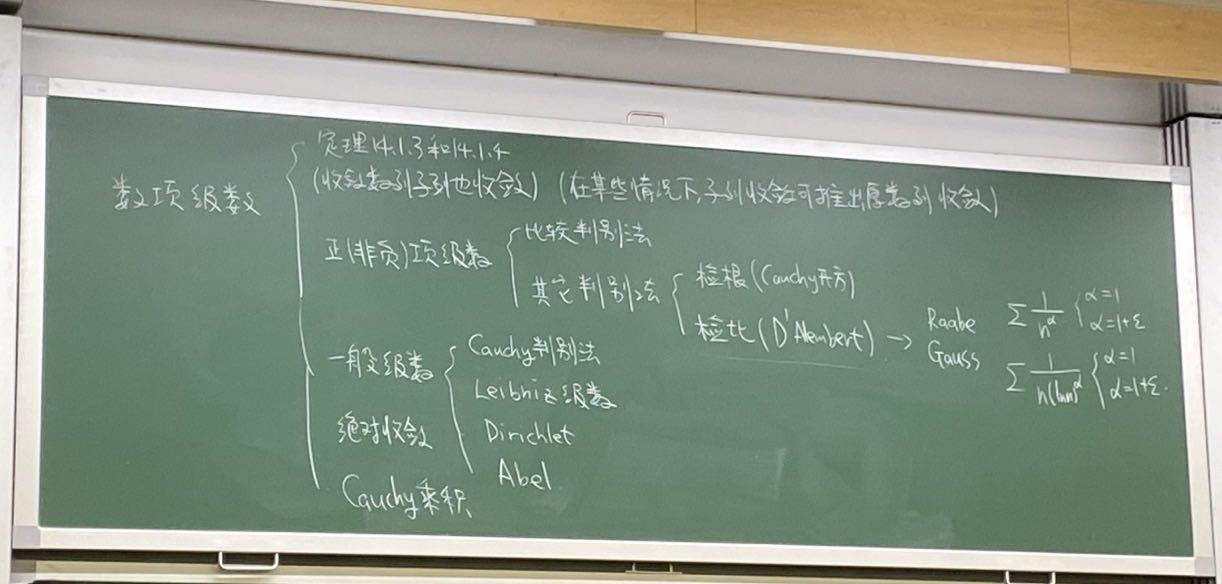 数项级数
定理14.1.3和14.1.4
(收敛数列子列也收敛) (在某些情况下,子列收敛可推出原数列收敛)
正(非负)项级数
比较判别法
其它判别法
检根(Cauchy开方)
检比(D'Alembert) → Raabe
Gauss
∑ 1/n^α { α=1
α=1+ε
∑ 1/n(lnn)^α { α=1
α=1+ε.
一般级数
Cauchy判别法
Leibniz级数
Dirichlet
Abel
绝对收敛
Cauchy乘积